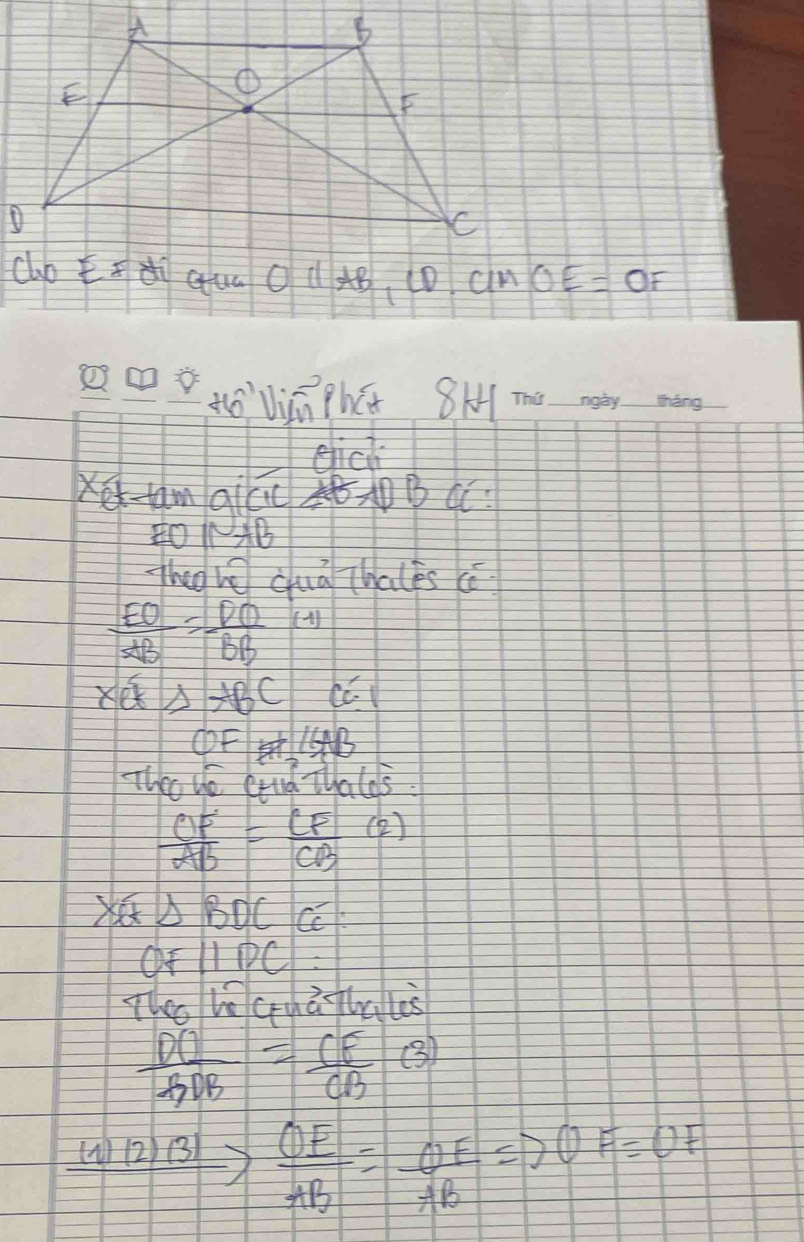 A B
E O F
D C
Cho EF đi qua O // AB, CD. CM OE = OF
Hồ Viễn Phát 8H1 Thứ ngày tháng
Giải
Xét tam giác ADB có:
EO // AB
Theo hệ quả Thalès có:
EO/AB = DO/BB (1)
Xét Δ ABC có:
OF // AB
Theo hệ quả Thalès:
OF/AB = CF/CB (2)
Xét Δ BDC có:
OF // DC:
Theo hệ quả Thalès
DO/DB = CF/CB (3)
(1) (2) (3) > OE/AB = OF/AB => OF = OF